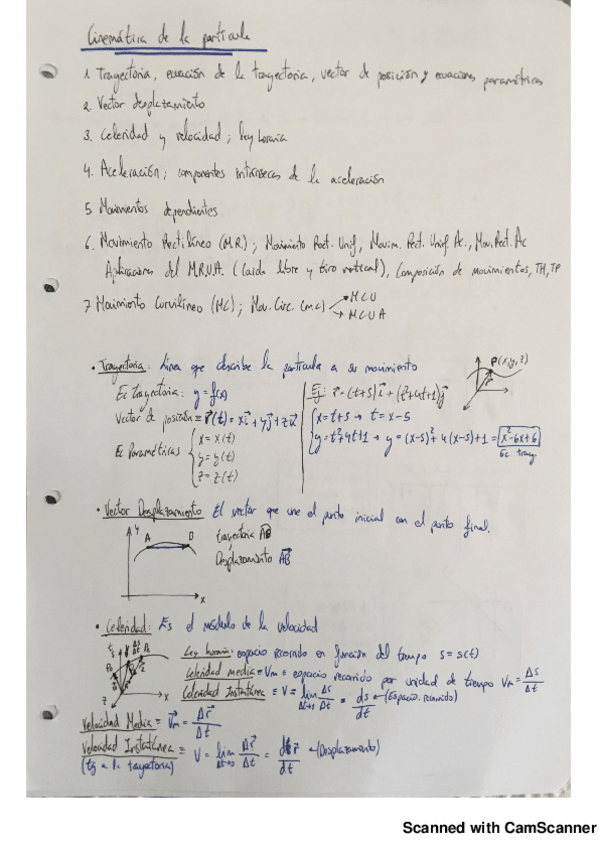 Cinemática de la partícula
1. Trayectoria, ecuación de la trayectoria, vector de posición y ecuaciones paramétricas
2. Vector desplazamiento
3. Celeridad y velocidad; ley horaria
4. Aceleración; componentes intrínsecas de la aceleración
5 Movimientos dependientes
6. Movimiento Rectilíneo (M.R.); Movimiento Rect. Unif, Movim. Rect. Unif Ac., Mov. Rect. Ac
Aplicaciones del M.R.U.A. (Caída libre y tiro vertical), Composición de movimientos, TH, TP
7 Movimiento Curvilíneo (MC); Mov. Circ. (m.c) → MCU
→ MCUA
• Trayectoria: línea que describe la partícula a su movimiento
P(x,y,z)
Ec trayectoria: y = f(x)
Vector de posición ≡ r⃗(t) = xi⃗ + yj⃗ + zk⃗
Ec Paramétricas { x = x(t)
y = y(t)
z = z(t)
Ej: r⃗ = (t+5)i⃗ + (t²+4t+1)j⃗
{ x = t+5 → t = x-5
y = t²+4t+1 → y = (x-5)² + 4(x-5)+1 = x²-6x+6
Ec. tray.
• Vector Desplazamiento El vector que une el punto inicial con el punto final.
y A B x
trayectoria AB
Desplazamiento AB⃗
• Celeridad: Es el módulo de la velocidad
Ley horaria: espacio recorrido en función del tiempo s = s(t)
Celeridad media ≡ Vm = espacio recorrido por unidad de tiempo Vm = Δs/Δt
Celeridad Instantánea ≡ V = lim Δt→0 Δs/Δt = ds/dt ← (Espacio recorrido)
Velocidad Media ≡ v⃗m = Δr⃗/Δt
Velocidad Instantánea ≡ V = lim Δt→0 Δr⃗/Δt = dr⃗/dt ← (Desplazamiento)
(tg a la trayectoria)
Scanned with CamScanner